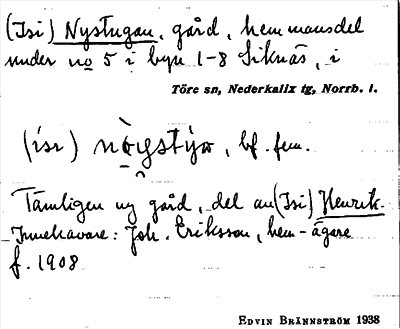 (Isi) Nystugan, gård, hemmansdel
under no 5 i byn 1-8 Siknäs, i
Töre sn, Nederkalix tg, Norrb. l.
(ísı)
bf. fem.
Tämligen ny gård, del av (Isi) Henrik.
Innehavare: Joh. Eriksson, hem-ägare
f. 1908
EDVIN BRÄNNSTRÖM 1938